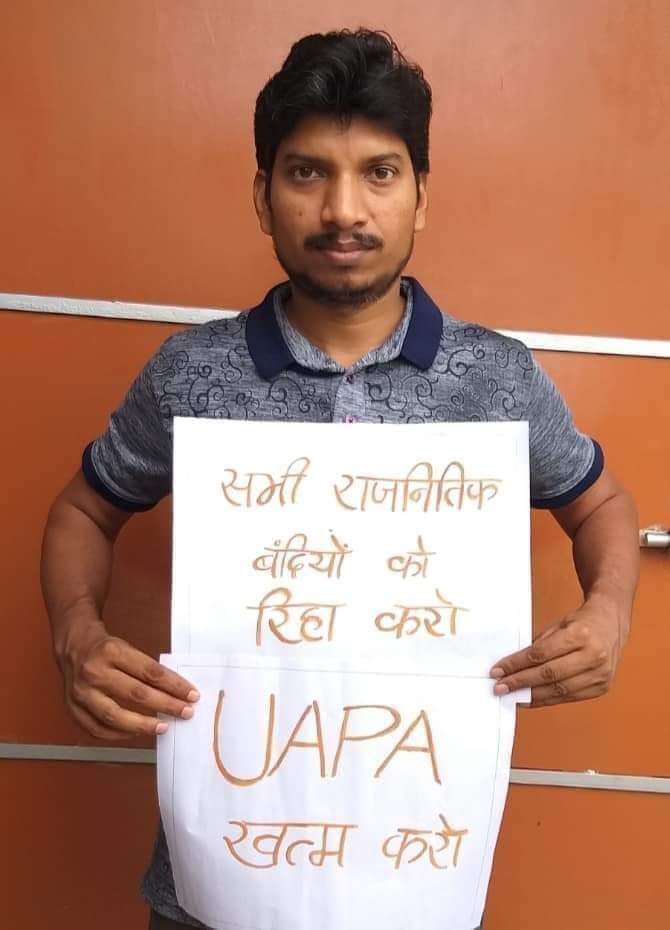 सभी राजनितिक
बंदियों को
रिहा करो
UAPA
खत्म करो